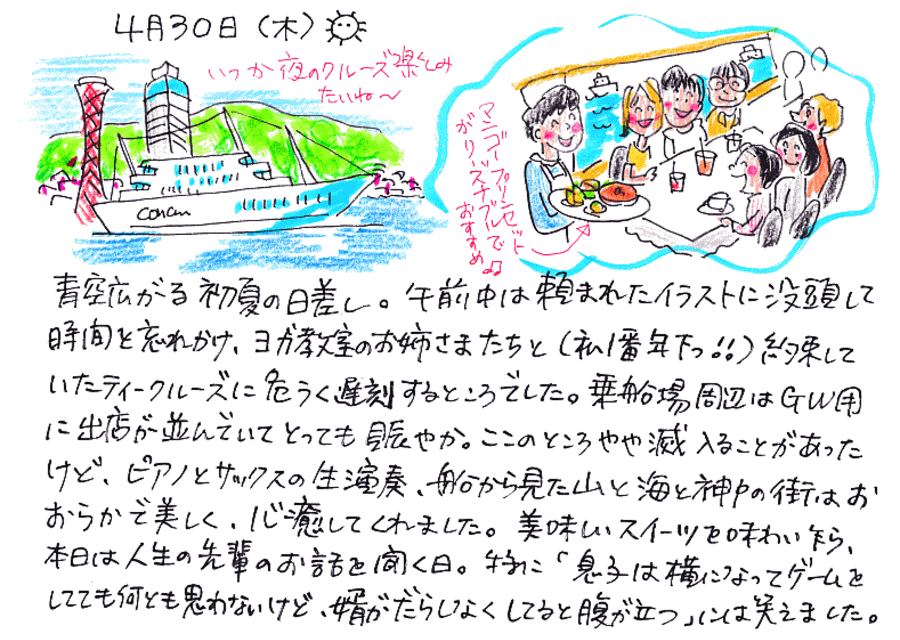 4月30日(木)
いつか夜のクルーズ楽しみ
たいね〜
マンゴープリンセット
がリーズナブルで
おすすめ♫
青空広がる初夏の日差し。午前中は頼まれたイラストに没頭して
時間を忘れかけ、ヨガ教室のお姉さまたちと(私1番年下っ!!)約束して
いたティークルーズに危うく遅刻するところでした。乗船場周辺はGW用
に出店が並んでいてとっても賑やか。ここのところやや滅入ることがあった
けど、ピアノとサックスの生演奏、船から見た山と海と神戸の街はお
おらかで美しく、心癒してくれました。美味しいスイーツを味わいながら、
本日は人生の先輩のお話を聞く日。特に「息子は横になってゲームを
してても何とも思わないけど、婿がだらしなくしてると腹が立つ」には笑えました。